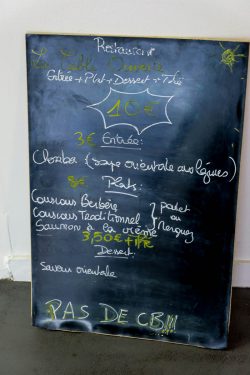 Restaurant
La Table Ouverte
Entrée + Plat + Dessert + Thé
10€
3€ Entrée:
Chorba (soupe orientale aux légumes)
8€ Plats:
Couscous Berbère
Couscous Traditionnel } poulet ou Merguez
Saumon à la crème
3,50€ + thé
Dessert:
Saveur orientale
PAS DE CB!!!